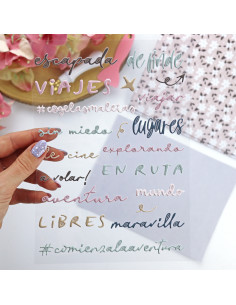 escapada de finde
VIAJES
viajar
sin miedo lugares
de cine explorando
a volar! EN RUTA
aventura mundo
e
LIBRES maravilla
#comienzalaaventura